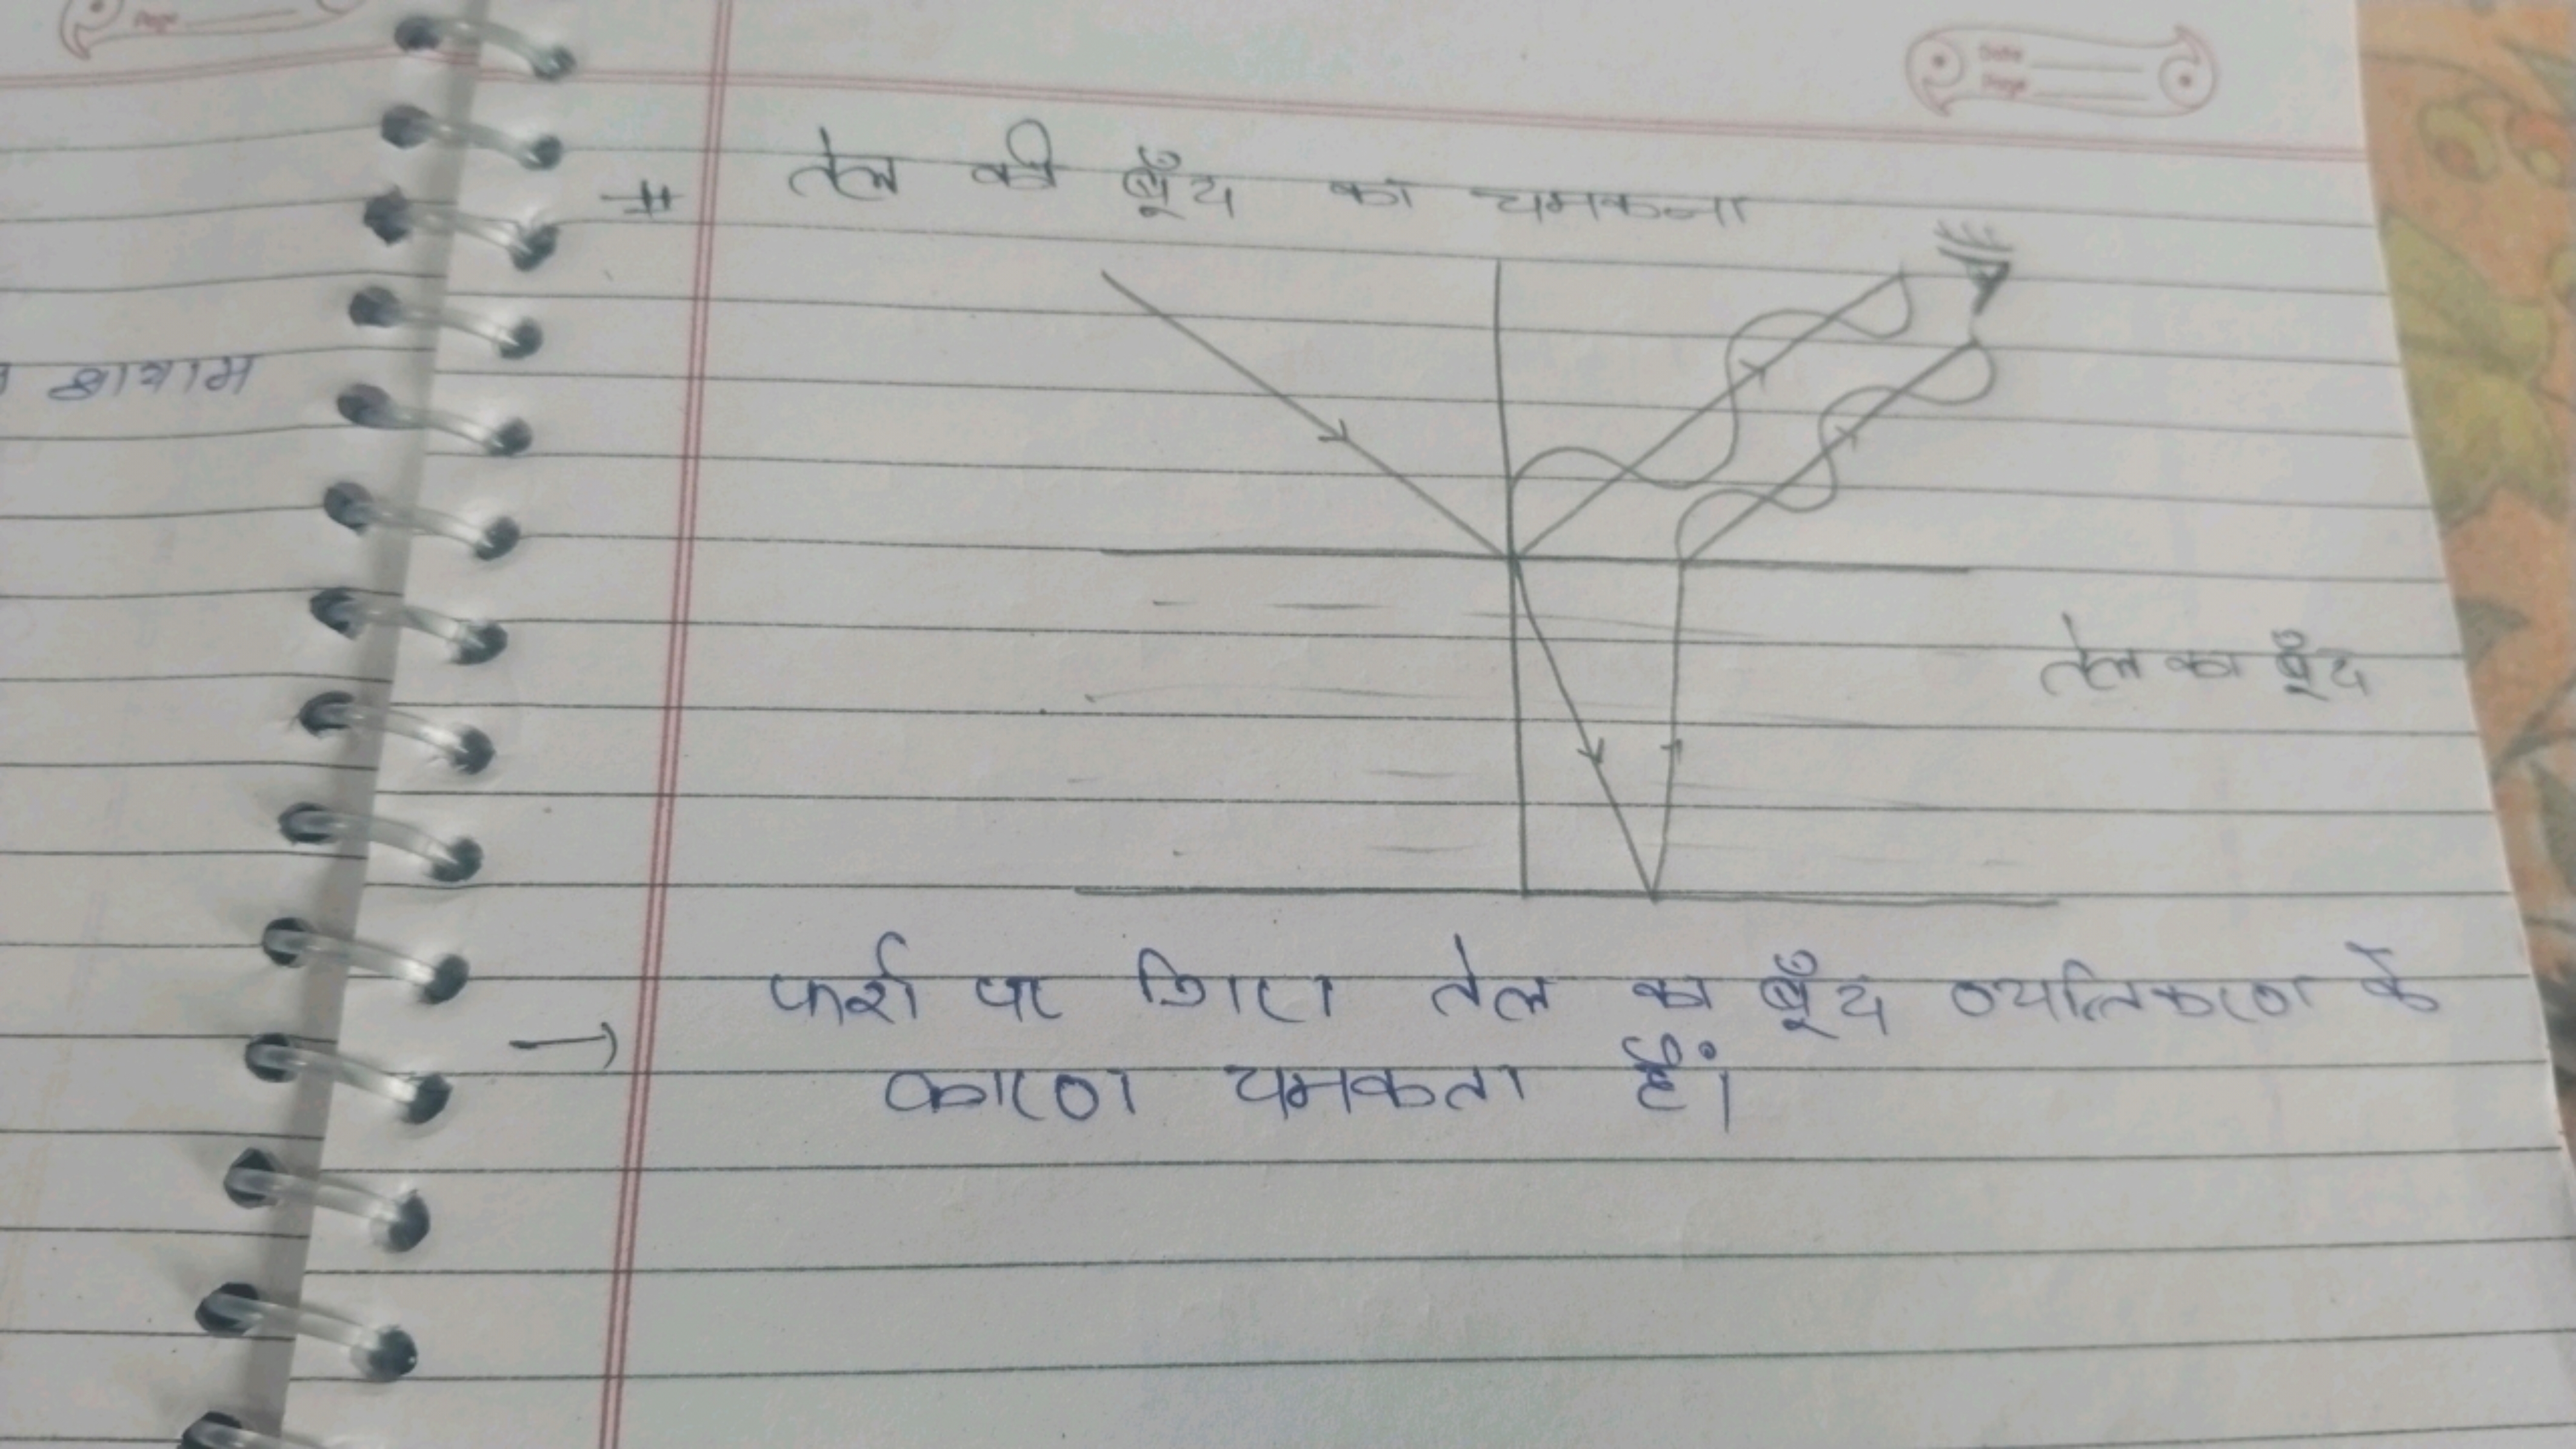 Page
Date
Page
# तेल की बूँद का चमकना
आयाम
तेल का बूँद
→ फर्श पर गिरा तेल का बूँद व्यतिकरण के
कारण चमकता हैं।